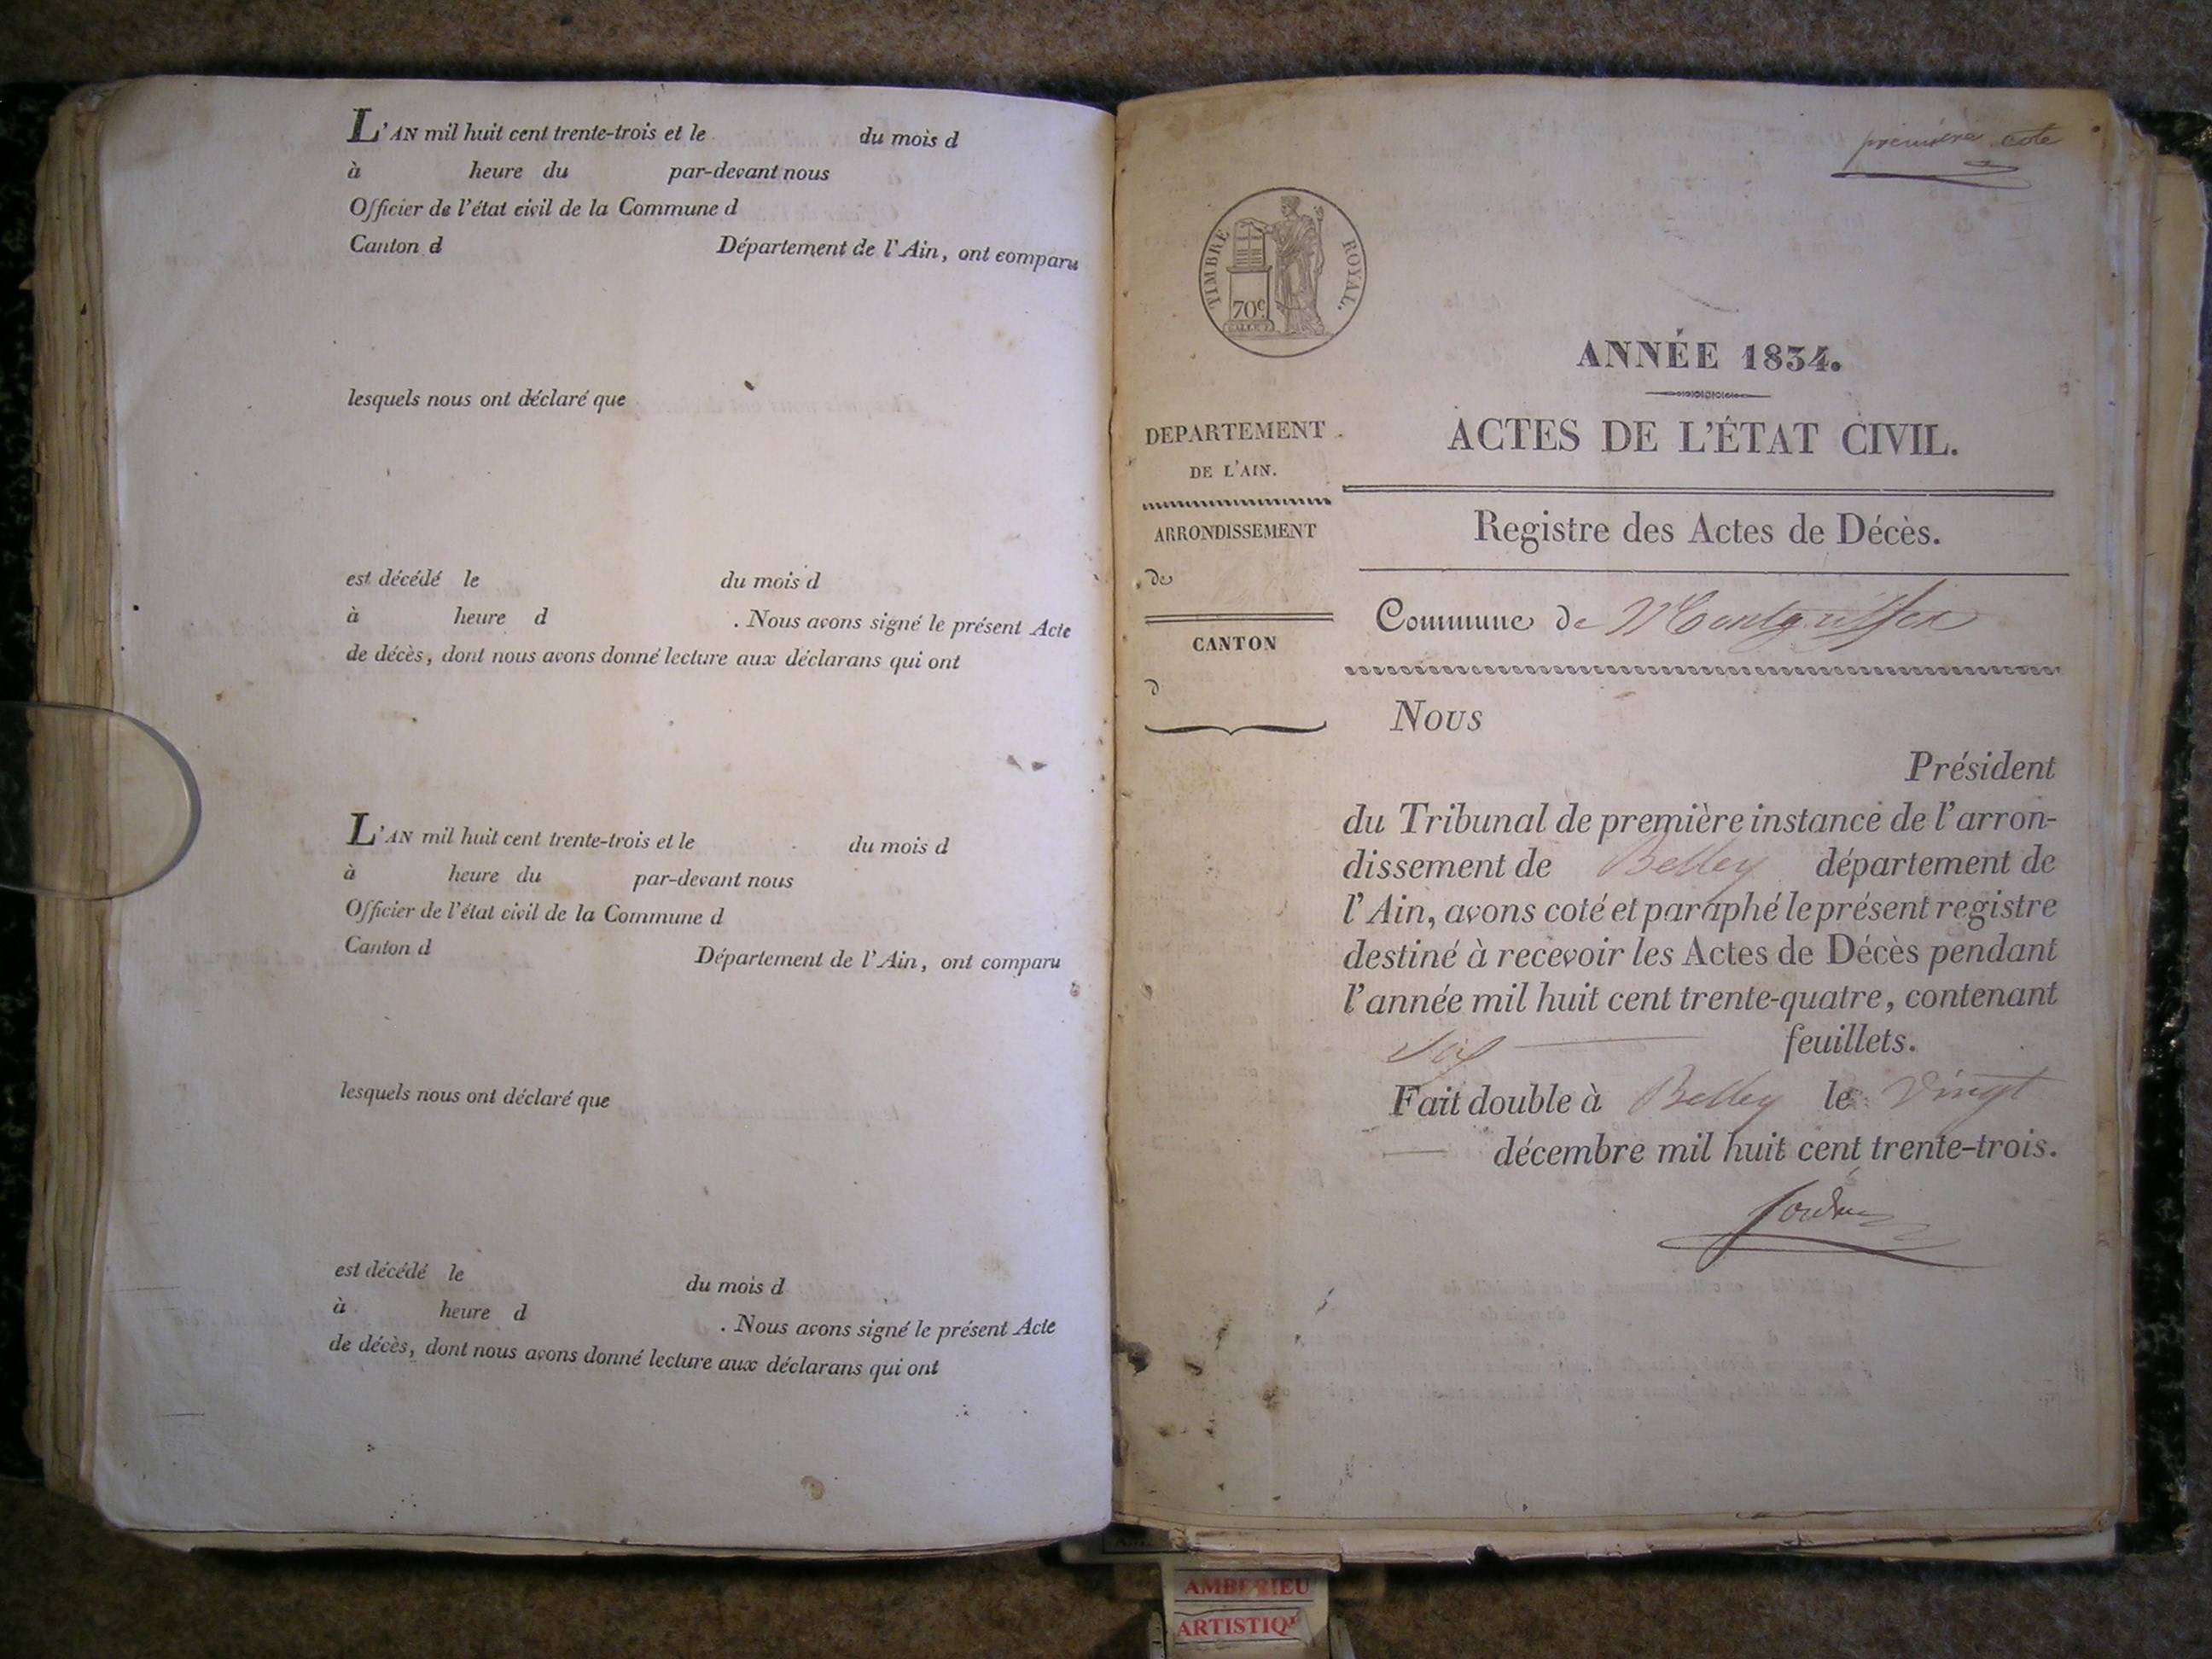 L'AN mil huit cent trente-trois et le du mois d
à heure du par-devant nous
Officier de l'état civil de la Commune d
Canton d Département de l'Ain, ont comparu
lesquels nous ont déclaré que
est décédé le du mois d
à heure d . Nous avons signé le présent Acte
de décès, dont nous avons donné lecture aux déclarans qui ont
L'AN mil huit cent trente-trois et le du mois d
à heure du par-devant nous
Officier de l'état civil de la Commune d
Canton d Département de l'Ain, ont comparu
lesquels nous ont déclaré que
est décédé le du mois d
à heure d . Nous avons signé le présent Acte
de décès, dont nous avons donné lecture aux déclarans qui ont
première cote
TIMBRE ROYAL.
70c
ANNÉE 1834.
ACTES DE L'ÉTAT CIVIL.
DEPARTEMENT
DE L'AIN.
ARRONDISSEMENT
de
CANTON
d
Registre des Actes de Décès.
Commune de
Nous
Président
du Tribunal de première instance de l'arron-
dissement de Belley département de
l'Ain, avons coté et paraphé le présent registre
destiné à recevoir les Actes de Décès pendant
l'année mil huit cent trente-quatre, contenant
six feuillets.
Fait double à Belley le vingt
décembre mil huit cent trente-trois.
AMBERIEU
ARTISTIQ